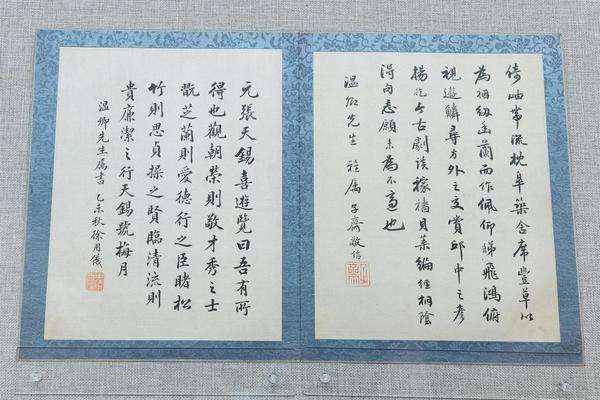 倚岫帶流枕阜築舍席豐草以
為裀紉幽蘭而作佩仰睇飛鴻俯
視遊鱗尋方外之交賞邱中之彥
揚扢今古劇談稼穡貝葉編經桐陰
得句志願未為不適也
溫卿先生 雅屬 子齋敬信
元張天錫喜遊覽曰吾有所
得也觀朝榮則敬才秀之士
翫芝蘭則愛德行之臣睹松
竹則思貞操之賢臨清流則
貴廉潔之行天錫號梅月
溫卿先生屬書 乙未秋徐用儀